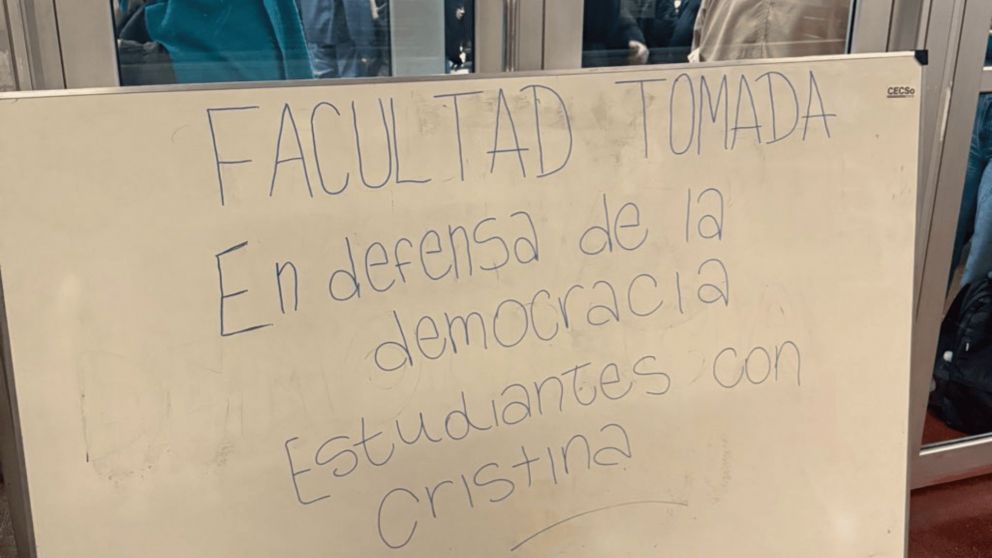 CECSo
FACULTAD TOMADA
En defensa de la
democracia
Estudiantes con
Cristina